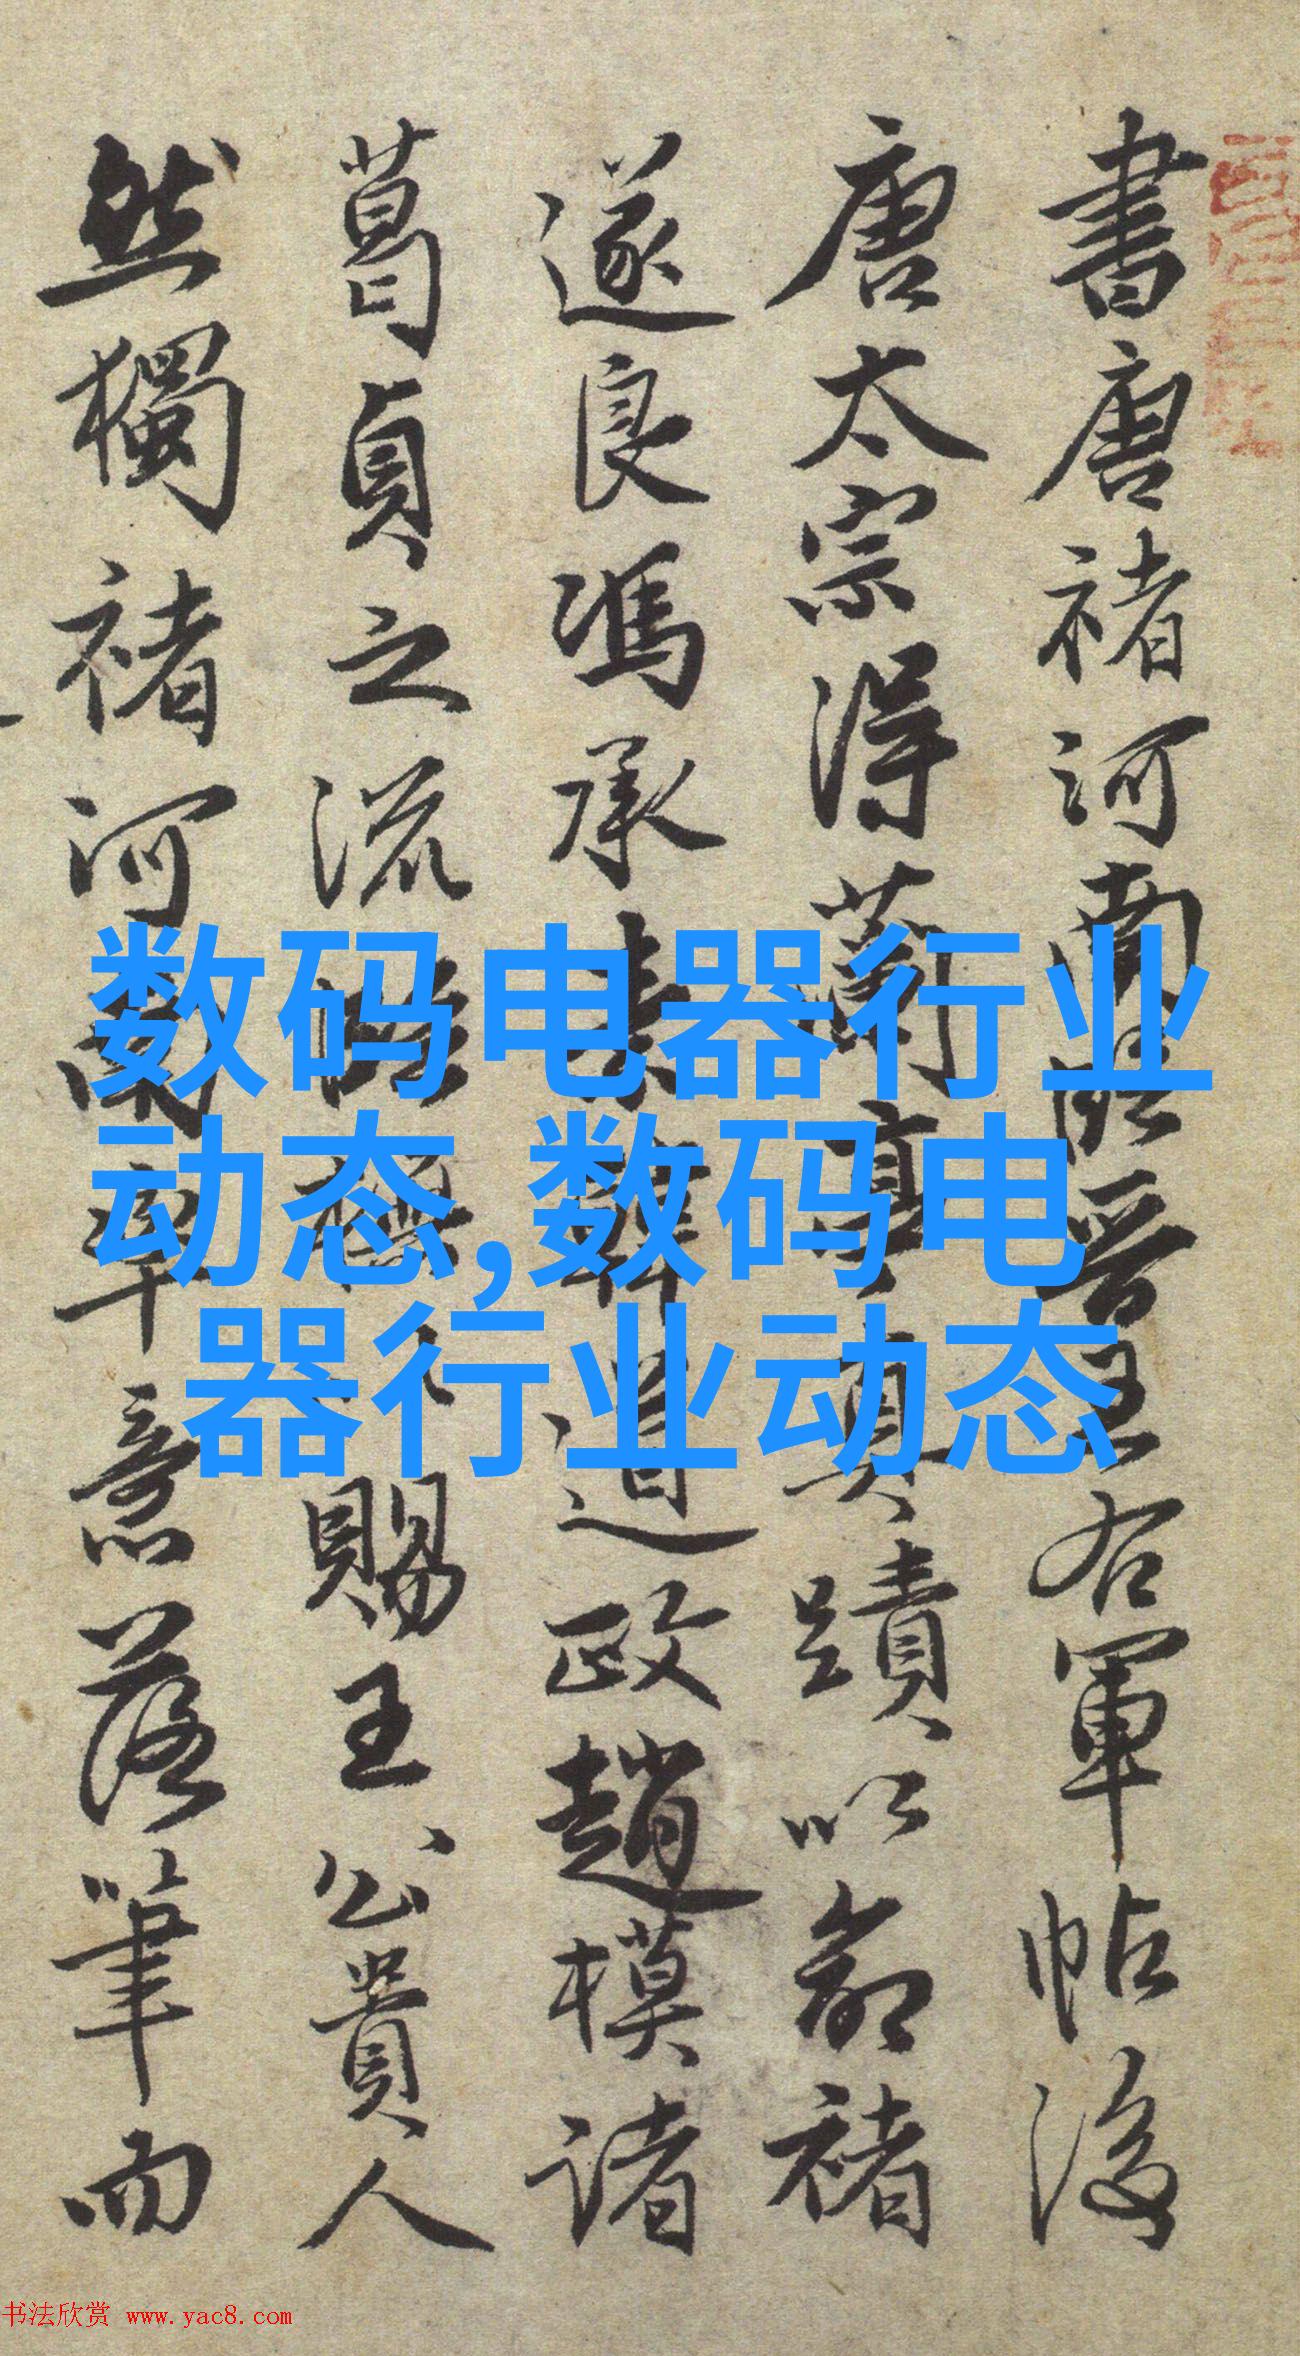 書唐褚河南臨晉王右軍帖後
唐太宗得蘭亭真蹟以命褚
遂良馮承素韓道政趙模諸
葛貞之流賜王公貴人
然獨褚河南率意落筆而
数码电器行业
动态,数码电
器行业动态
书法欣赏 www.yac8.com